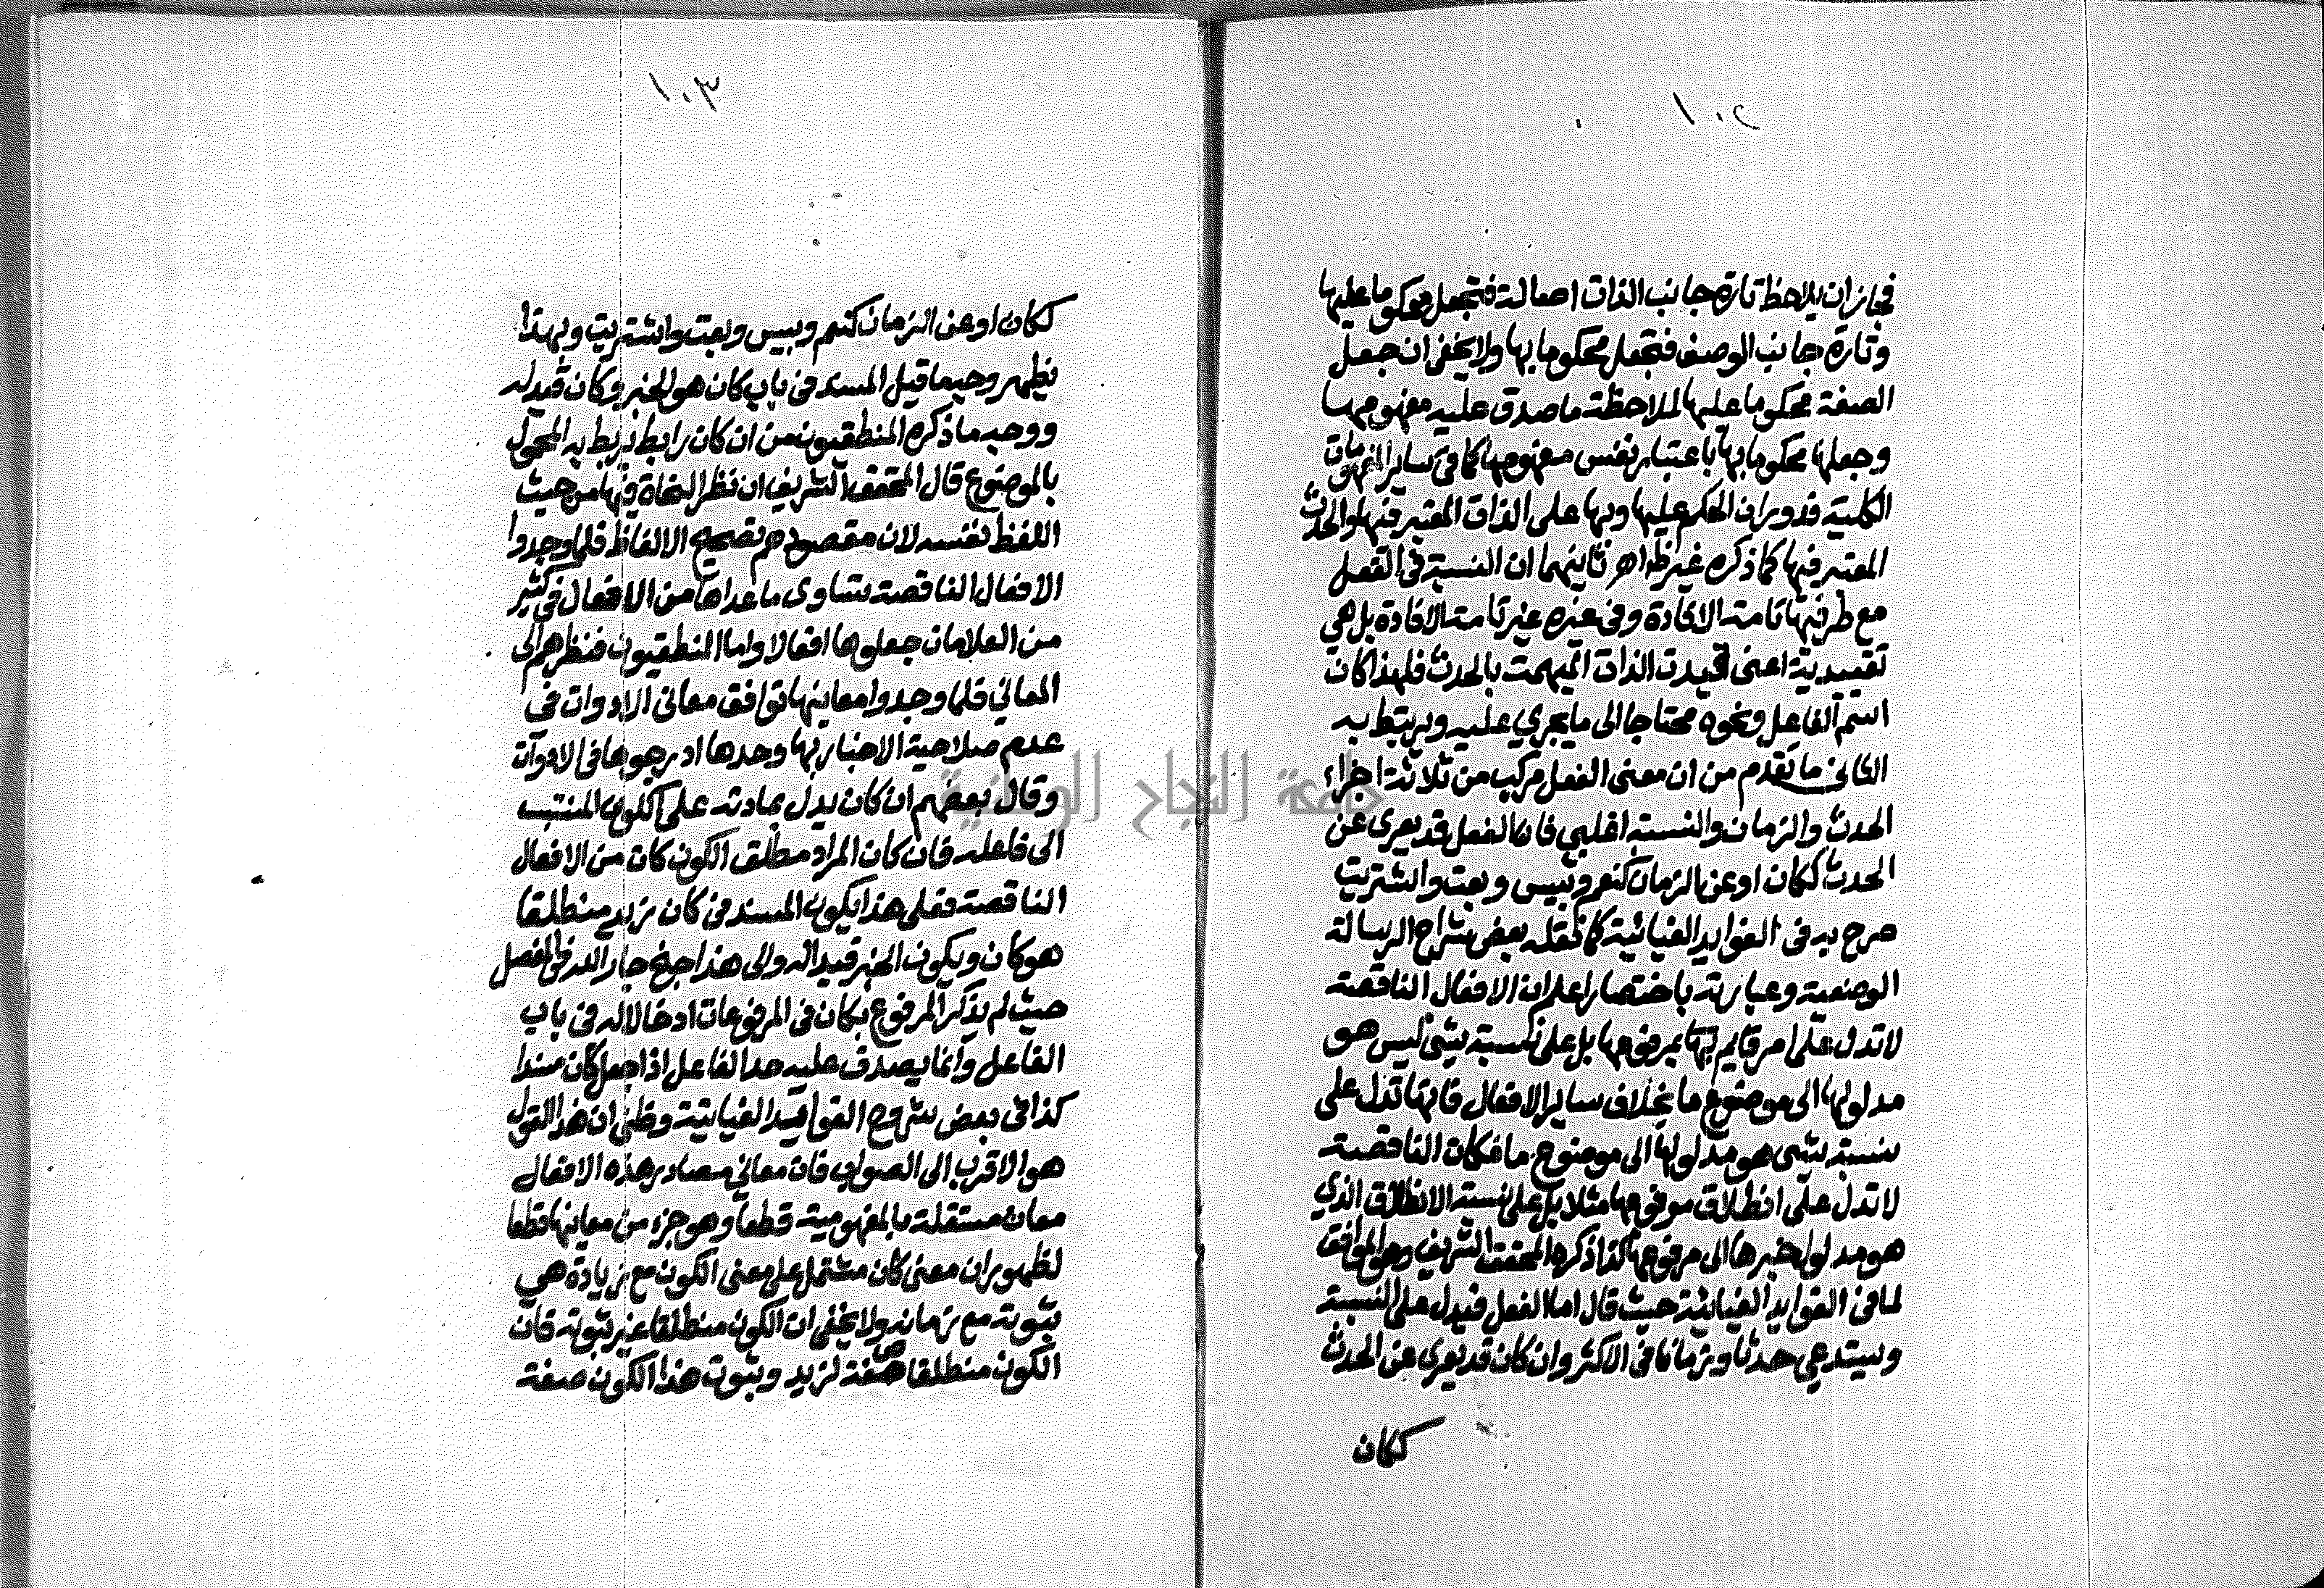 ١٠٢
فجاز ان يلاحظ تارة جانب الذات اصالة فتجعل محكوما عليها
وتارة جانب الوصف فتجعل محكوما بها ولا يخفى ان جعل
الصفة محكوما عليها لملاحظة ما صدق عليه مفهومها
وجعلها محكوما بها باعتبار نفس مفهومها كما في ساير المفهومات
الكلية فدوران الحكم عليها وبها على الذات المعتبر فيها والحدث
المعتبر فيها كما ذكره غير ظاهر ثانيهما ان النسبة في الفعل
مع طرفيها تامة الافادة وفي غيره غير تامة الافادة بل هي
تقييدية اعني قيدت الذات المبهمة بالحدث فلهذا كان
اسم الفاعل ونحوه محتاجا الى ما يجري عليه ويرتبط به
الثاني ما تقدم من ان معنى الفعل مركب من ثلاثة اجزاء
الحدث والزمان والنسبة اغلبي فان الفعل قد يعرى عن
الحدث ككان او عن الزمان كنعم وبيس وبعت واشتريت
صرح به في الفوايد الغياثية كما نقله بعض شراح الرسالة
الوضعية وعبارته باختصار اعلم ان الافعال الناقصة
لا تدل على امر قايم بها بمرفوعها بل على نسبة شيء ليس هو
مدلولها الى موضوع ما بخلاف ساير الافعال فانها تدل على
نسبة شيء هو مدلولها الى موضوع ما فكان الناقصة
لا تدل على انطلاق مرفوعها مثلا بل على نسبة الانطلاق الذي
هو مدلول خبرها الى مرفوعها كذا ذكره المحقق الشريف وهو الموافق
لما في الفوايد الغياثية حيث قال اما الفعل فيدل على النسبة
ويستدعي حدثا وزمانا في الاكثر وان كان قد يعرى عن الحدث
ككان
١٠٣
ككان او عن الزمان كنعم وبيس وبعت واشتريت وبهذا
يظهر وجه ما قيل المسند في باب كان هو الخبر وكان قيد له
ووجه ما ذكره المنطقيون من ان كان رابط يربط به المحمول
بالموضوع قال المحقق الشريف ان نظر النحاة فيها من حيث
اللفظ نفسه لان مقصودهم تصحيح الالفاظ فلما وجدوا
الافعال الناقصة تساوى ما عداها من الافعال في كثير
من العلامات جعلوها افعالا واما المنطقيون فنظرهم الى
المعاني فلما وجدوا معاينها توافق معاني الادوات في
عدم صلاحية الاخبار بها وحدها ادرجوها في الادوات
وقال بعضهم ان كان يدل بمادته على الكون المنتسب
الى فاعله فان كان المراد مطلق الكون كان من الافعال
الناقصة فعلى هذا يكون المسند في كان زيد منطلقا
هو كان ويكون الخبر قيدا له والى هذا جنح جار الله في المفصل
حيث لم يذكر المرفوع بكان في المرفوعات ادخالا له في باب
الفاعل وانما يصدق عليه حد الفاعل اذا جعل كان مسندا
كذا في بعض شروح الفوايد الغياثية وظني ان هذا القول
هو الاقرب الى الصواب فان معاني مصادر هذه الافعال
معان مستقلة بالمفهومية قطعا وهو جزء من معاينها قطعا
لظهور ان معنى كان مشتمل على معنى الكون مع زيادة هي
ثبوته مع زمانه ولا يخفى ان الكون منطلقا غير ثبوته فان
الكون منطلقا صفة لزيد وثبوت هذا الكون صفة
جامعة النجاح الوطنية